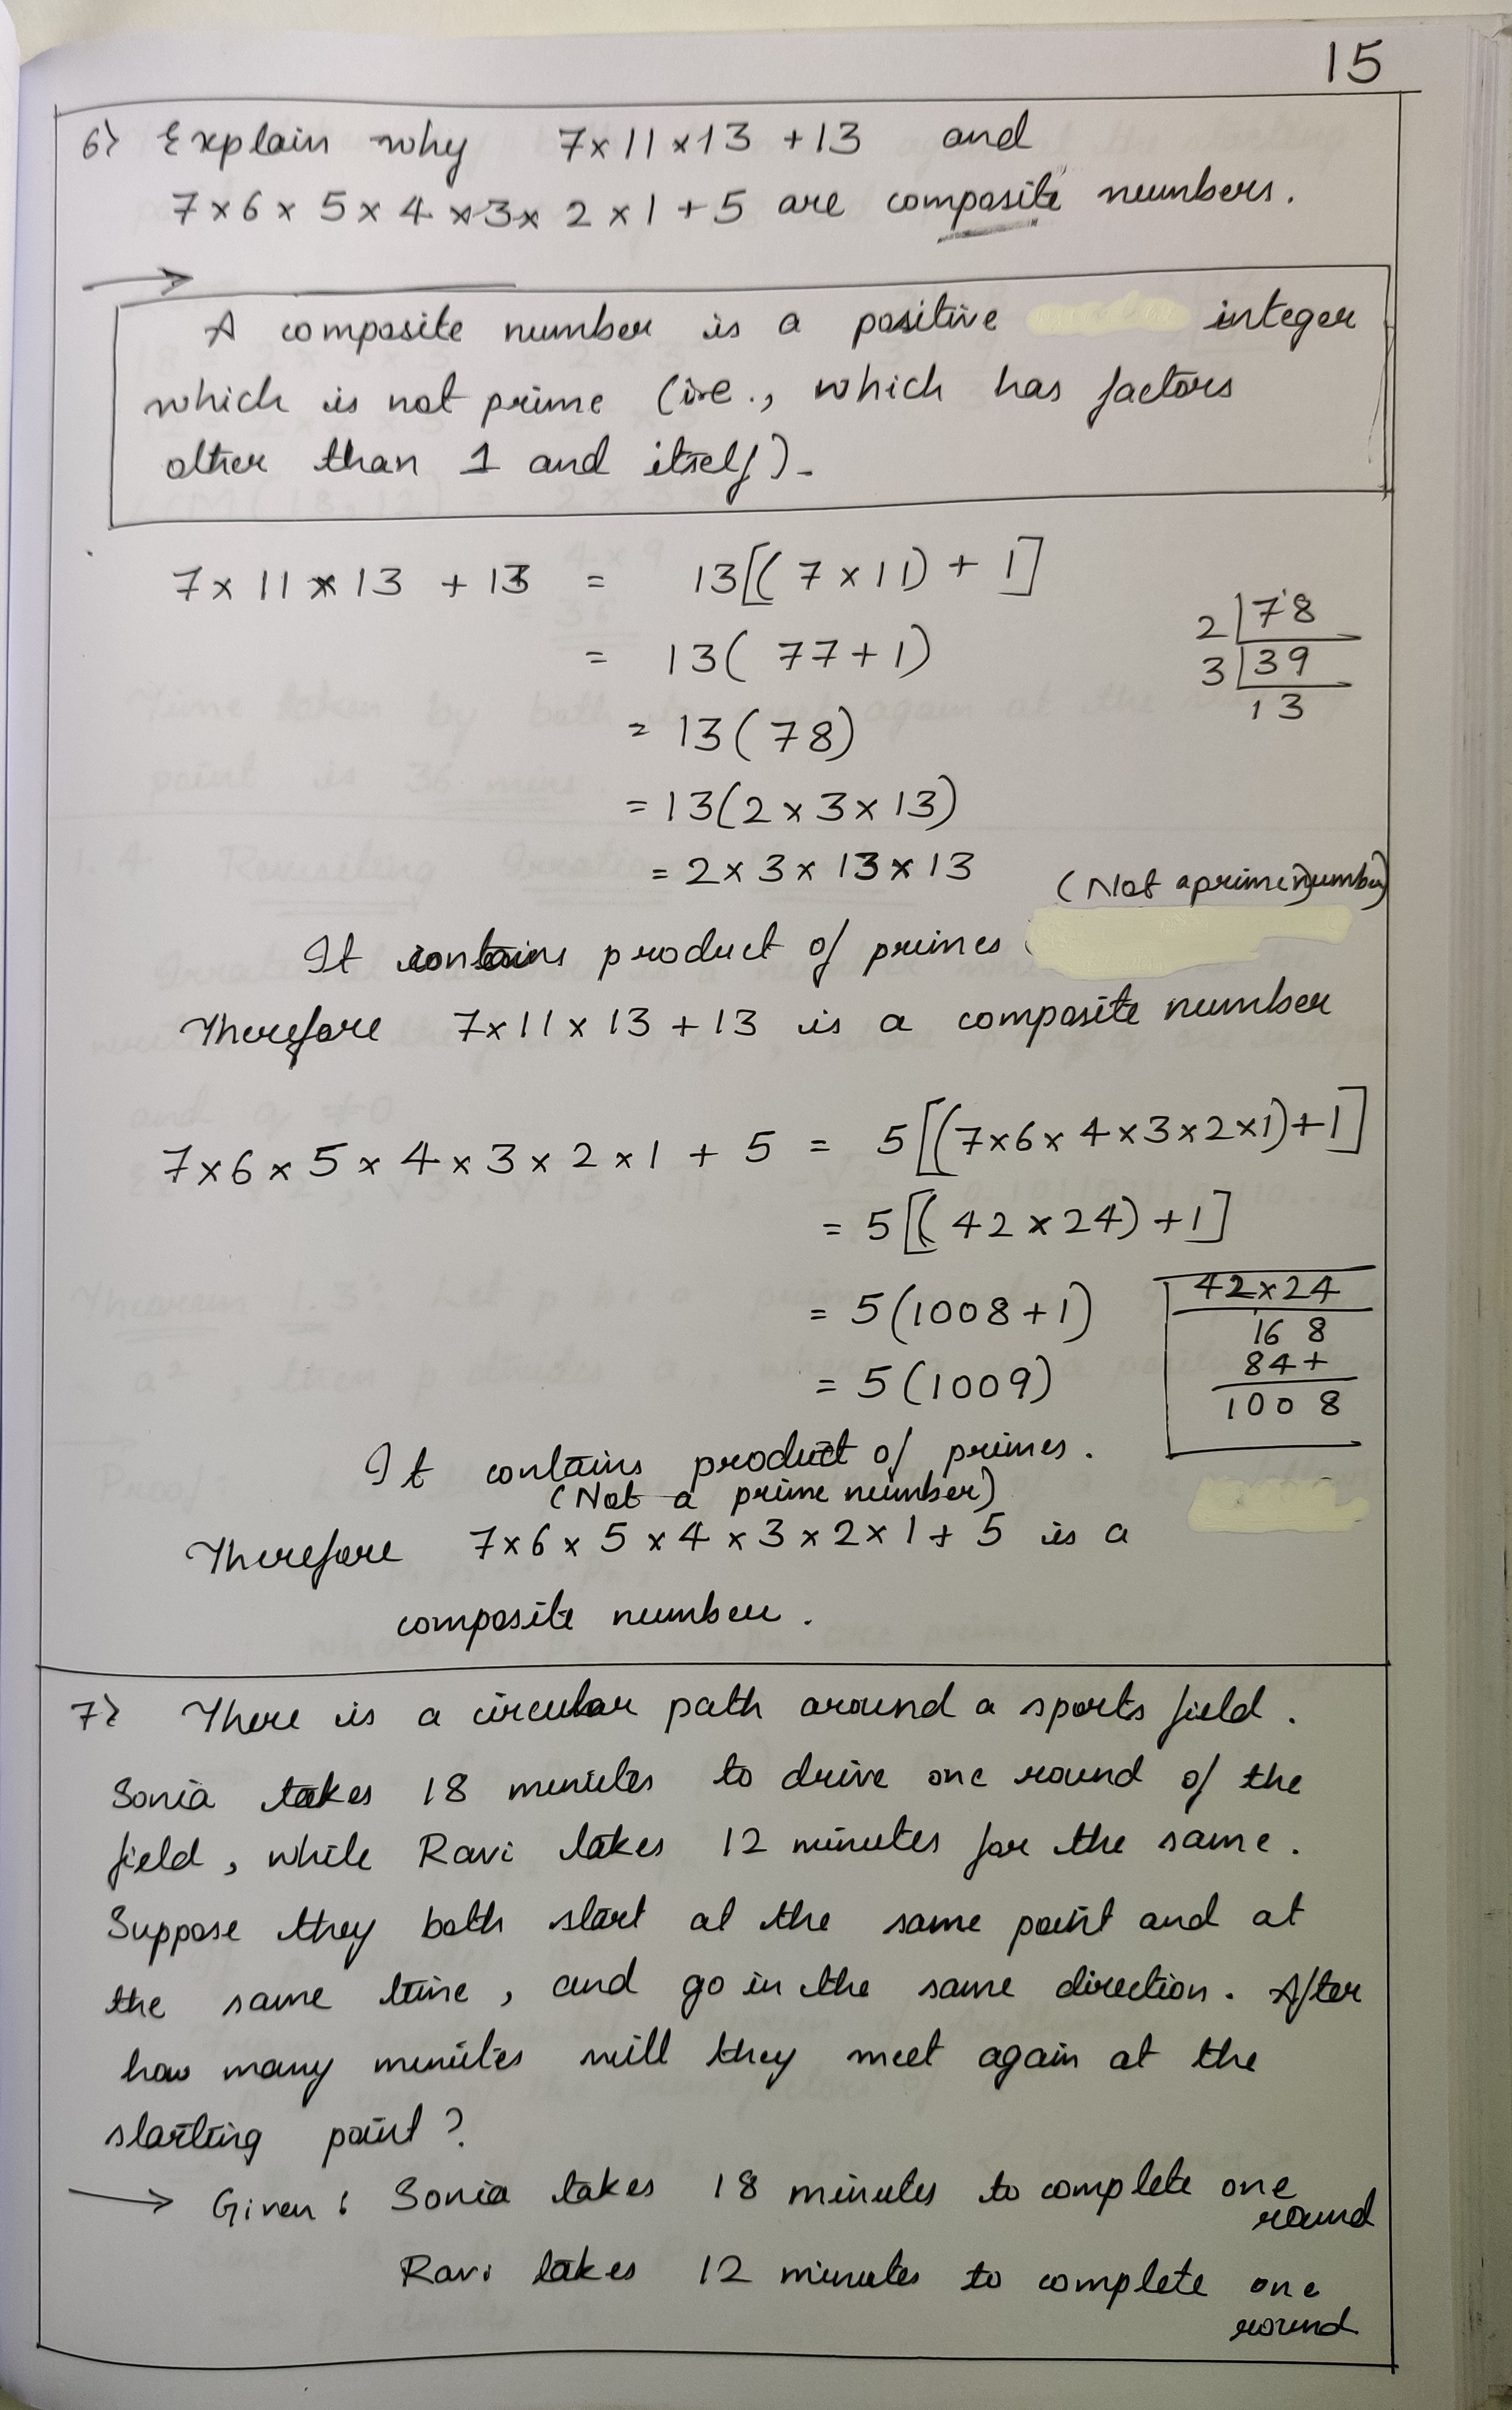 15
6) Explain why 7×11×13 +13 and
7×6×5×4×3×2×1+5 are composite numbers.
→
A composite number is a positive integer
which is not prime (i.e., which has factors
other than 1 and itself).
7×11×13 +13 = 13[(7×11)+1]
= 13(77+1)
= 13(78)
= 13(2×3×13)
= 2×3×13×13
2|78
3|39
13
(Not a prime number)
It contains product of primes
Therefore 7×11×13+13 is a composite number
7×6×5×4×3×2×1+5 = 5[(7×6×4×3×2×1)+1]
= 5[(42×24)+1]
= 5(1008+1)
= 5(1009)
42×24
168
84+
1008
It contains product of primes.
(Not a prime number)
Therefore 7×6×5×4×3×2×1+5 is a
composite number.
7) There is a circular path around a sports field.
Sonia takes 18 minutes to drive one round of the
field, while Ravi takes 12 minutes for the same.
Suppose they both start at the same point and at
the same time, and go in the same direction. After
how many minutes will they meet again at the
starting point?
→ Given: Sonia takes 18 minutes to complete one
round
Ravi takes 12 minutes to complete one
round